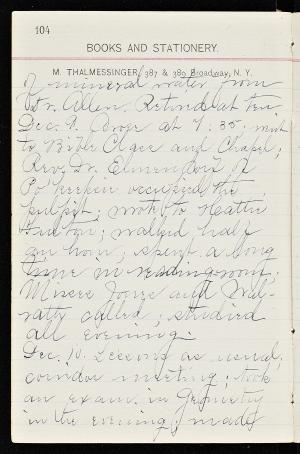 104
BOOKS AND STATIONERY.
M. THALMESSINGER, 387 & 389 Broadway, N.Y.
of mineral water from
Dr. Allen. Retired at ten
Dec. 9. Arose at 7:35; went
to Bible Class and Chapel;
Rev. Dr. Elmendorf of
Po'keepsie occupied the
pulpit; wrote to Hattie
; walked half
an hour; spent a long
time in reading-room;
Misses Jones and
called; studied
all evening.
Dec. 10. Lessons as usual;
corridor meeting; took
an exam. in Geometry
in the evening; made